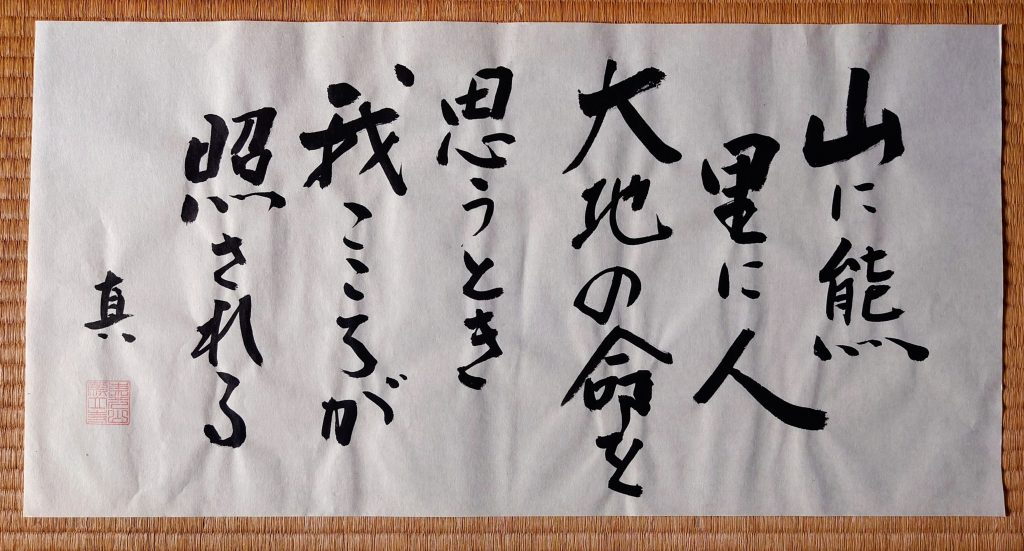 山に熊
里に人
大地の命を
思うとき
我こころが
照される
真